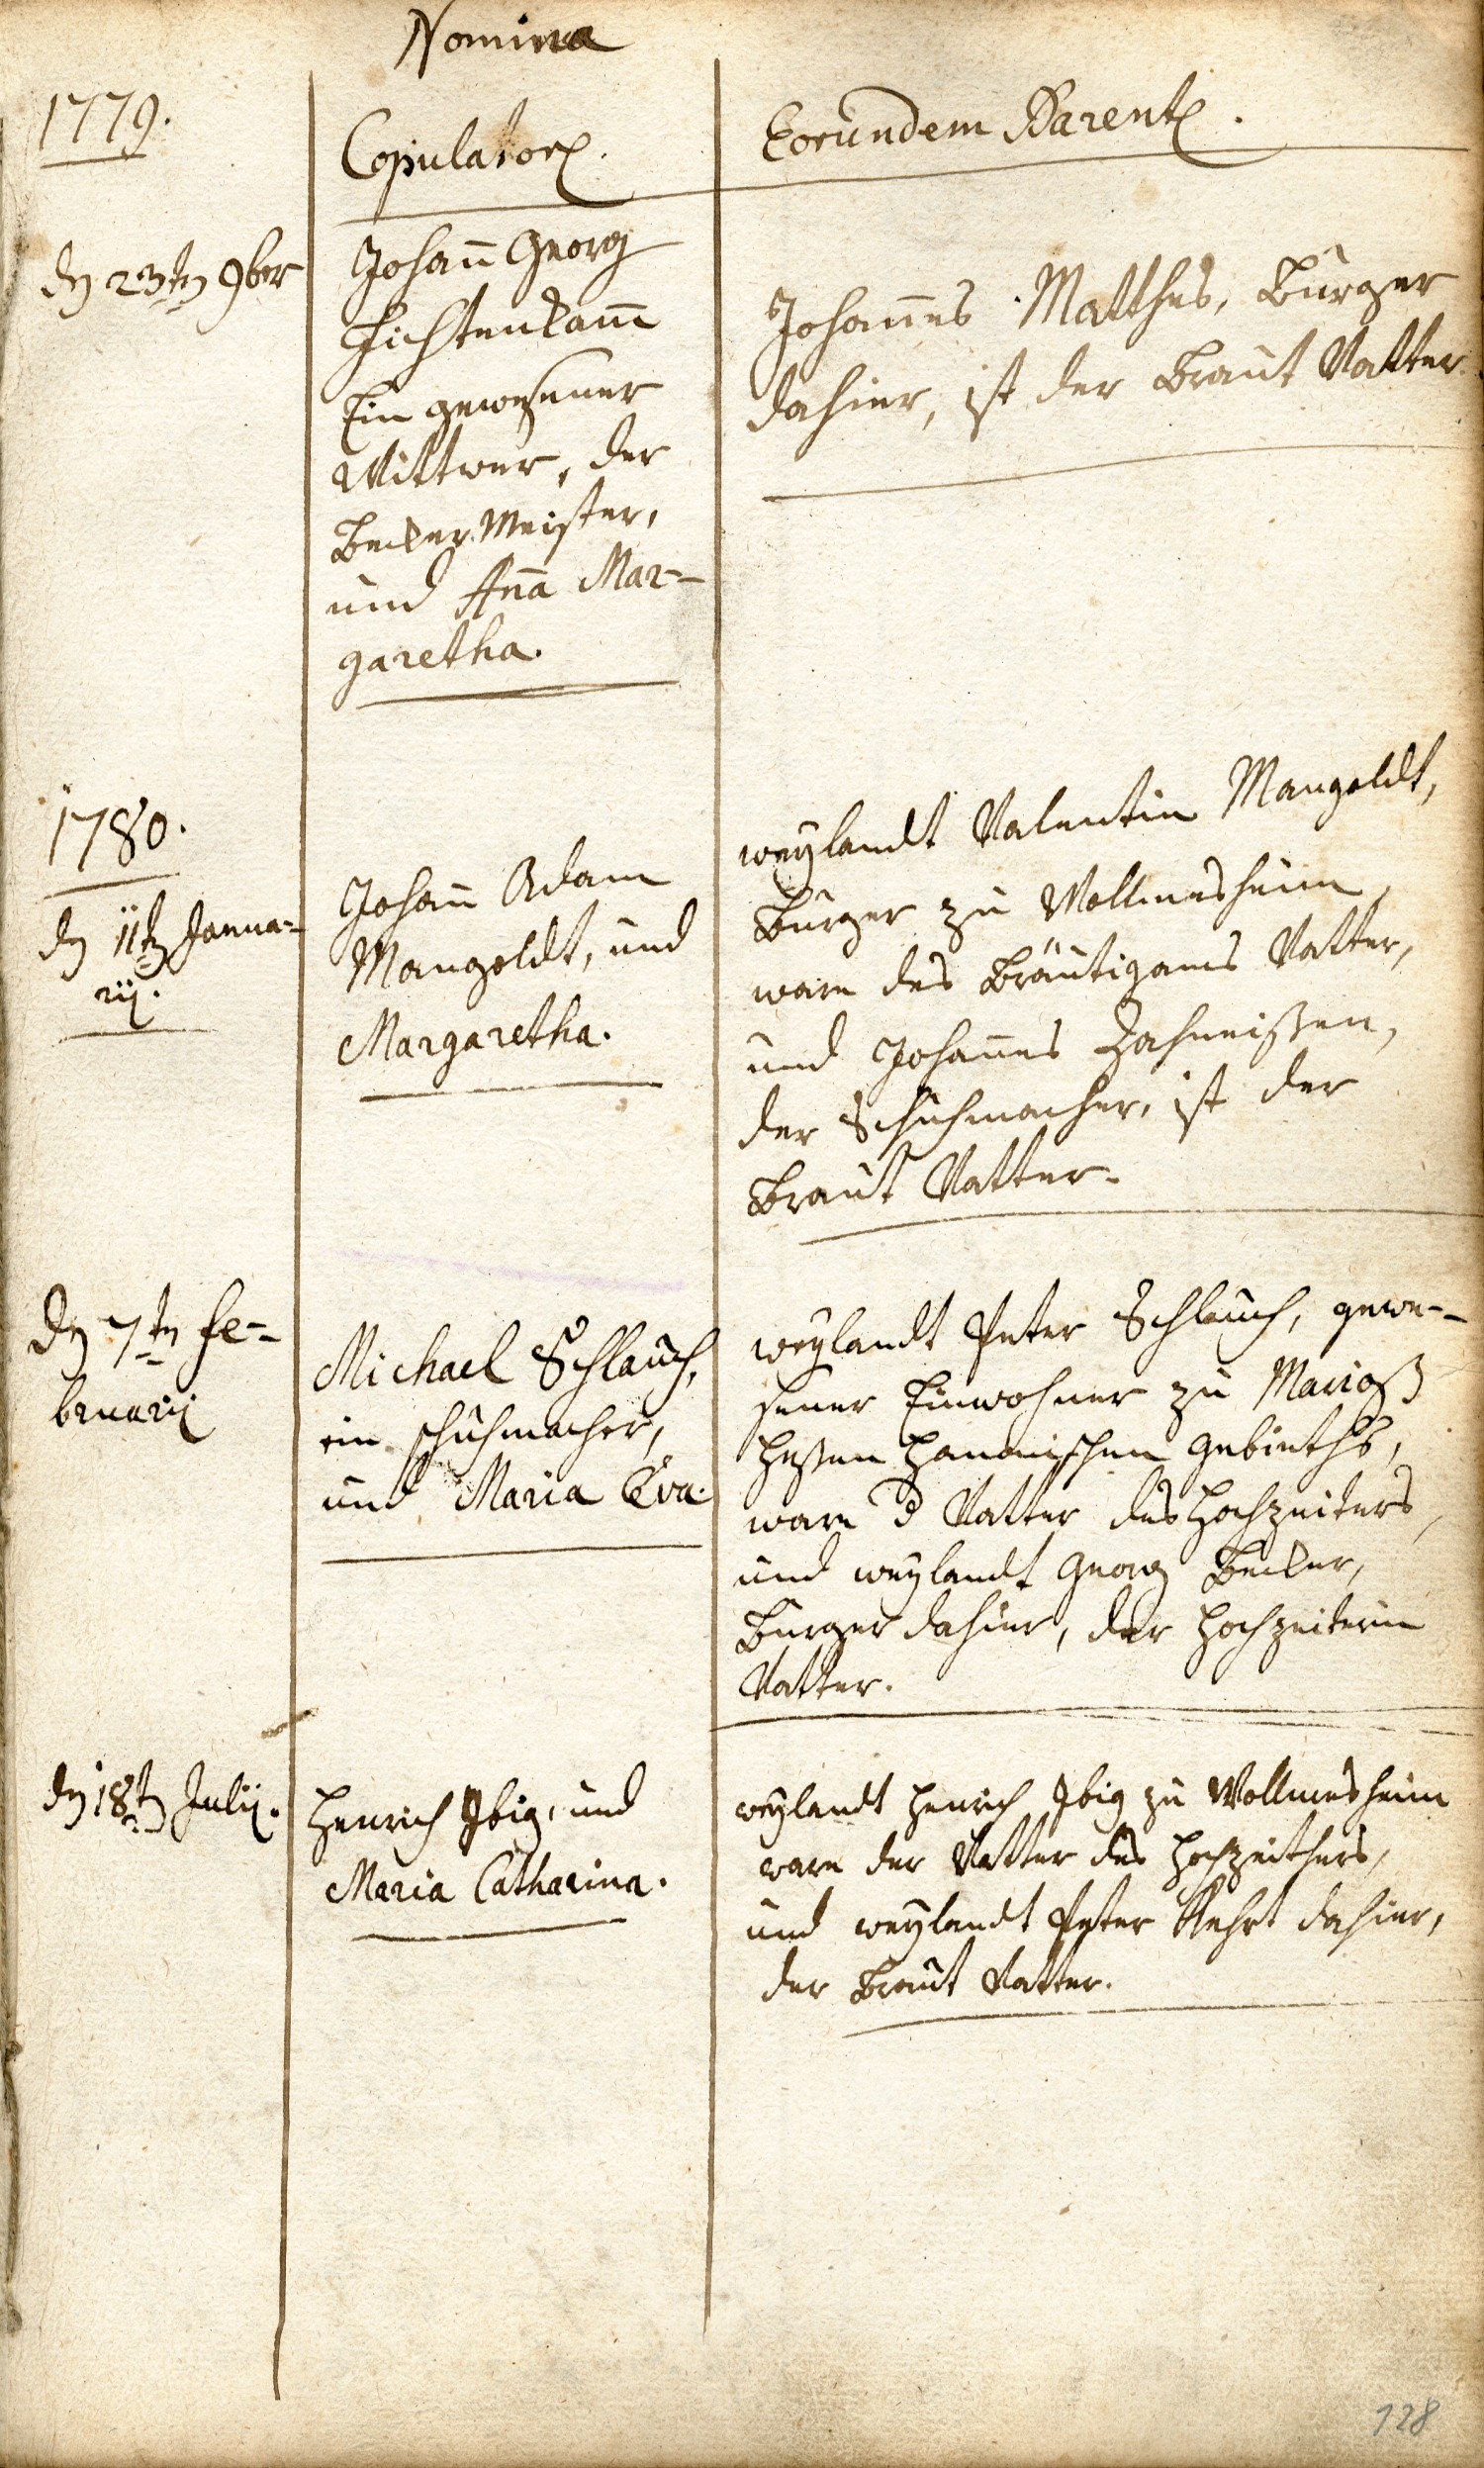 Nomina
1779.
Copulator.
Eorundem Parent.
dn 23tn 9ber
Johañ Georg
Fichtenkam̃
Ein gewesener
Wittwer, der
Becker Meister,
und Aña Mar-
garetha.
Johañes Matthes, Burger
dahier, ist der Braut Vatter.
1780.
dn 11tn Janua-
rij.
Johañ Adam
Mangoldt, und
Margaretha.
weylandt Valentin Mangoldt,
Burger zu Wollmesheim,
ware des Bräutigams Vatter,
und Johañes Zahneißen,
der Schuhmacher, ist der
Braut Vatter.
dn 7tn Fe-
bruarij
Michael Schlauch,
ein schuhmacher,
und Maria Eva.
weylandt Peter Schlauch, gewe-
sener Einwohner zu Marioß
Heßen Hanauischen Gebieths,
ware d Vatter des Hochzeiters,
und weylandt Georg Becker,
Burger dahier, der Hochzeiterin
Vatter.
dn 18tn Julij.
Henrich Ibig, und
Maria Catharina.
weylandt Henrich Ibig zu Wollmesheim
ware der Vatter des Hochzeithers,
und weylandt Peter dahier,
der Braut Vatter.
128